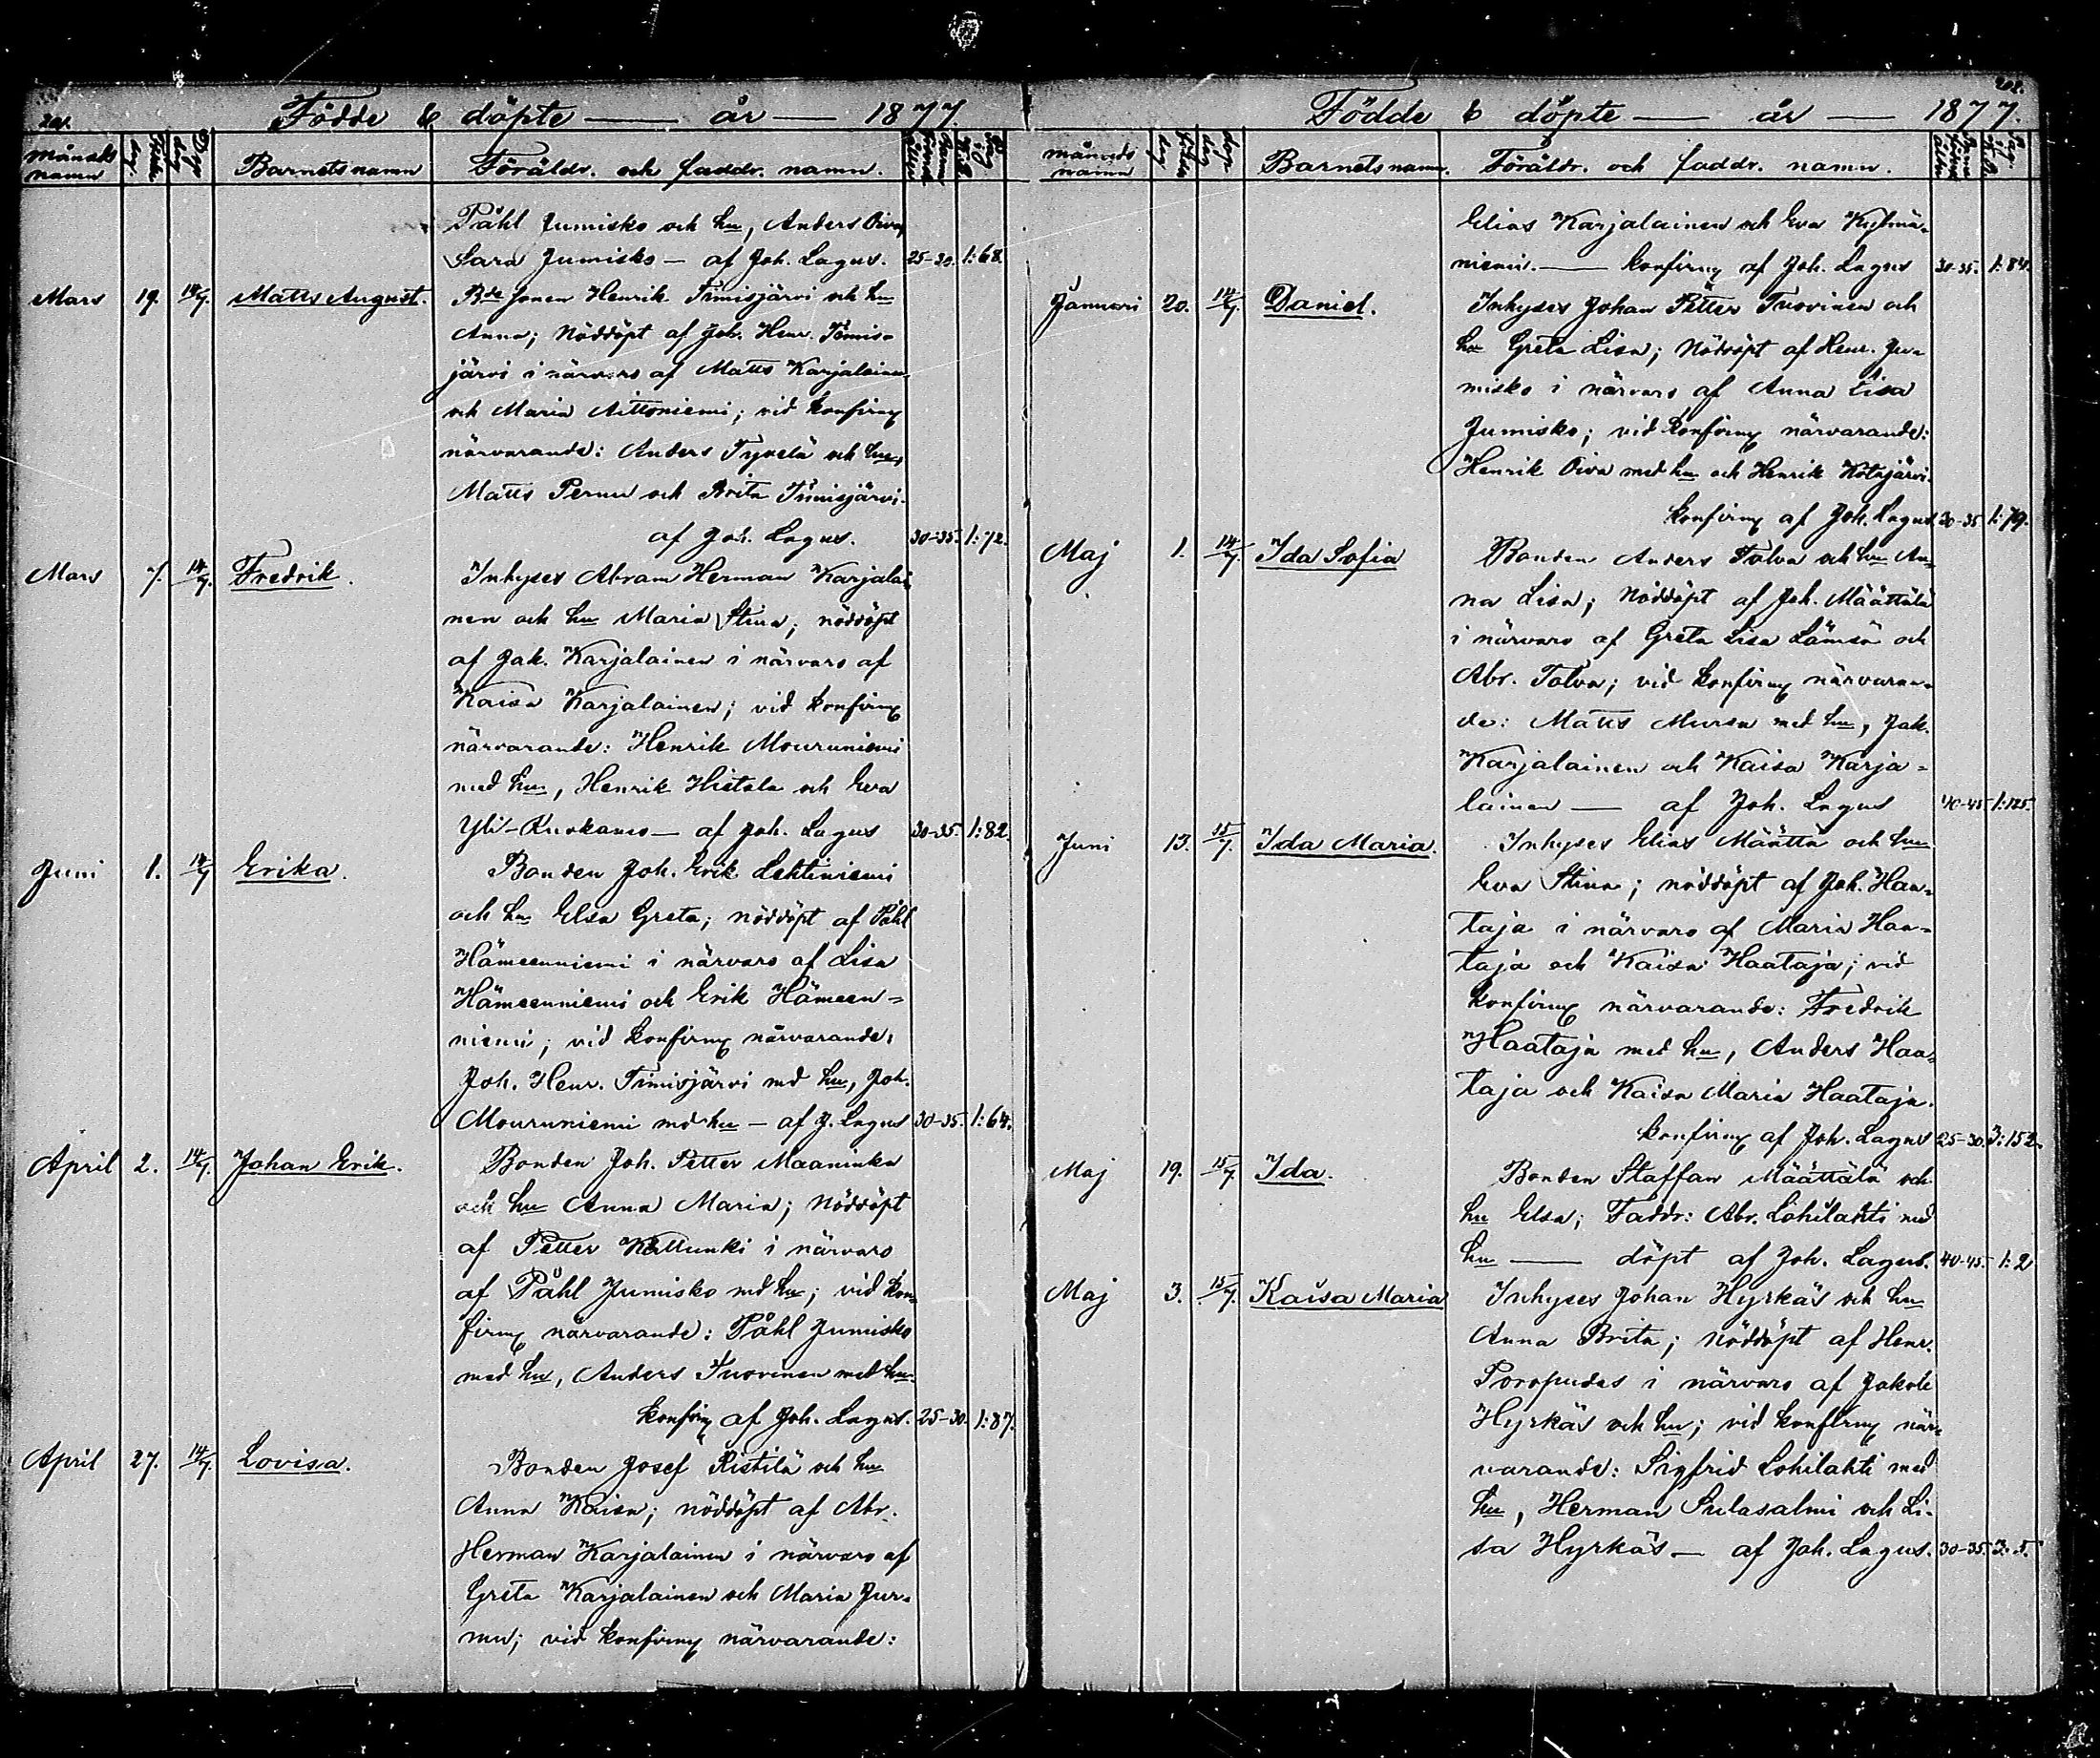 201.
Födde & döpte — år — 1877.
Månads namn
Barnets namn
Föräldr. och faddr. namn.
Påhl Jumisko och hu, Anders Oiva,
Sara Jumisko — af Joh. Lagus. 25-30. 1:68.
Mars 19. 14/7. Matts August. Bde sonen Henrik Timisjärvi och hu
Anna; Nöddöpt af Joh. Henr. Timis-
järvi i närvaro af Matts Karjalainen
och Maria Aittoniemi; vid konfirm
närvarande: Anders Tyvelä och hu,
Matts Pernu och Brita Timisjärvi.
af Joh. Lagus. 30-35. 1:72.
Mars 7. 14/7. Fredrik. Inhyses Abram Herman Karjalai-
nen och hu Maria Stina; nöddöpt
af Jak. Karjalainen i närvaro af
Kaisa Karjalainen; vid konfirm
närvarande: Henrik Mouruniemi
med hu, Henrik Hietala och Eva
Yli-Kurkamo — af Joh. Lagus 30-35. 1:82.
Juni 1. 14/7 Erika. Bonden Joh. Erik Lehtiniemi
och hu Elsa Greta; nöddöpt af Påhl
Hämeenniemi i närvaro af Lisa
Hämeenniemi och Erik Hämeen-
niemi; vid konfirm närvarande:
Joh. Henr. Timisjärvi md hu, Joh.
Mouruniemi md hu — af J. Lagus 30-35. 1:64.
April 2. 14/7. Johan Erik. Bonden Joh. Petter Maaninka
och hu Anna Maria; Nöddöpt
af Petter Kallunki i närvaro
af Påhl Jumisko md hu; vid kon-
firm närvarande: Påhl Jumisko
med hu, Anders Tuovinen med hu.
konfirm af Joh. Lagus. 25-30. 1:87.
April 27. 14/7. Lovisa. Bonden Josef Ristilä och hu
Anna Kaisa; nöddöpt af Abr.
Herman Karjalainen i närvaro af
Greta Karjalainen och Maria Jur-
mu; vid konfirm närvarande:
202.
Födde & döpte — år — 1877.
månads namn
Barnets namn. Föräldr. och faddr. namn.
Elias Karjalainen och Eva Kylmä-
niemi. — konfirm af Joh. Lagus 30-35. 1:84.
Januari 20. 14/7. Daniel. Inhyses Johan Petter Tuovinen och
hu Greta Lisa; Nöddöpt af Henr. Ju-
misko i närvaro af Anna Lisa
Jumisko; vid konfirm närvarande:
Henrik Oiva med hu och Henrik Kotajärvi.
konfirm af Joh. Lagus 30-35 1:79.
Maj 1. 14/7. Ida Sofia Bonden Anders Tolva och hu An-
na Lisa; Nöddöpt af Joh. Määttälä
i närvaro af Greta Lisa Lämsä och
Abr. Tolva; vid konfirm närvaran-
de: Matts Mursa med hu, Jak.
Karjalainen och Kaisa Karja-
lainen — af Joh. Lagus 40-45 1:125.
Juni 13. 15/7. Ida Maria. Inhyses Elias Määttä och hu
Eva Stina; nöddöpt af Joh. Haa-
taja i närvaro af Maria Haa-
taja och Kaisa Haataja; vid
konfirm närvarande: Fredrik
Haataja med hu, Anders Haa-
taja och Kaisa Maria Haataja.
konfirm af Joh. Lagus 25-30. 3:152.
Maj 19. 15/7. Ida. Bonden Staffan Määttälä och
hu Elsa; Faddr: Abr. Lohilahti md
hu — döpt af Joh. Lagus. 40-45. 1:2
Maj 3. 15/7. Kaisa Maria Inhyses Johan Hyrkäs och hu
Anna Brita; Nöddöpt af Henr.
Poropudas i närvaro af Jakob
Hyrkäs och hu; vid konfirm när-
varande: Sigfrid Lohilahti med
hu, Herman Sulasalmi och Li-
sa Hyrkäs — af Joh. Lagus. 30-35. 3:5.